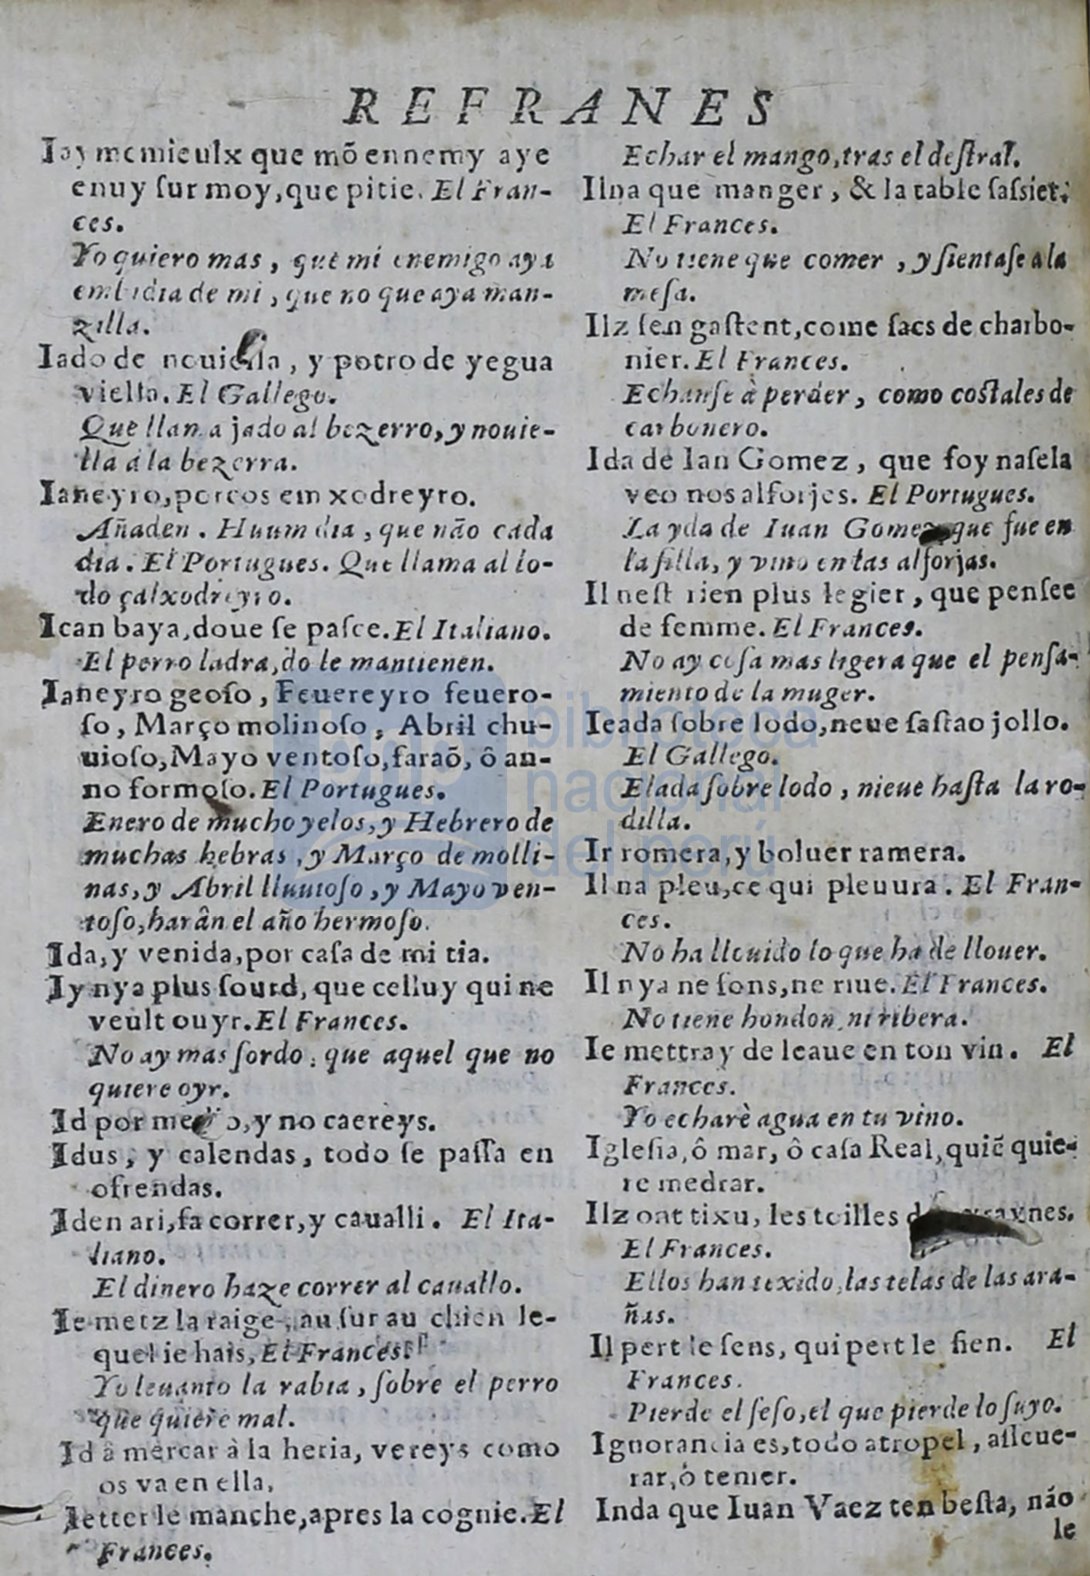 REFRANES
Iay me mieulx que mõ ennemy aye
enuy ſur moy, que pitie. El Fran-
ces.
Yo quiero mas, que mi enemigo aya
embidia de mi, que no que aya man-
zilla.
Iado de nouiella, y potro de yegua
viella. El Gallego.
Que llama jado al bezerro, y nouie-
lla á la bezerra.
Ianeyro, porcos em xodreyro.
Añaden. Huum dia, que não cada
dia. El Portugues. Que llama al lo-
do çalxodreyro.
Ican baya, doue ſe paſce. El Italiano.
El perro ladra, do le mantienen.
Ianeyro geoſo, Feuereyro feuero-
ſo, Março molinoſo, Abril chu-
uioſo, Mayo ventoſo, faraõ, ô an-
no formoſo. El Portugues.
Enero de mucho yelos, y Hebrero de
muchas hebras, y Março de molli-
nas, y Abril lluuioſo, y Mayo ven-
toſo, harân el año hermoſo.
Ida, y venida, por caſa de mi tia.
Iy nya plus ſourd, que celluy qui ne
veult ouyr. El Frances.
No ay mas ſordo, que aquel que no
quiere oyr.
Id por medio, y no caereys.
Idus, y calendas, todo ſe paſſa en
ofrendas.
Iden ari, fa correr, y caualli. El Ita-
liano.
El dinero haze correr al cauallo.
Ie metz la raige, au ſur au chien le-
quel ie hais, El Frances.
Yo leuanto la rabia, ſobre el perro
que quiere mal.
Id â mercar à la heria, vereys como
os va en ella,
Ietter le manche, apres la cognie. El
Frances.
Echar el mango, tras el deſtral.
Ilna que manger, & la table ſaſſiet.
El Frances.
No tiene que comer, y ſientaſe a la
meſa.
Ilz ſen gaſtent, come ſacs de charbo-
nier. El Frances.
Echanſe à perder, como coſtales de
carbonero.
Ida de Ian Gomez, que foy naſela
veo nos alforjes. El Portugues.
La yda de Iuan Gomez que fue en
la ſilla, y vino en las alforjas.
Il neſt rien plus legier, que penſee
de femme. El Frances.
No ay coſa mas ligera que el penſa-
miento de la muger.
Ieada ſobre lodo, neue ſaſtao jollo.
El Gallego.
Elada ſobre lodo, nieue haſta la ro-
dilla.
Ir romera, y boluer ramera.
Il na pleu, ce qui pleuura. El Fran-
ces.
No ha llouido lo que ha de llouer.
Il nya ne fons, ne riue. El Frances.
No tiene hondon, ni ribera.
Ie mettray de leaue en ton vin. El
Frances.
Yo echarè agua en tu vino.
Igleſia, ô mar, ô caſa Real, quiẽ quie-
re medrar.
Ilz ont tixu, les toilles
El Frances.
Ellos han texido, las telas de las ara-
ñas.
Il pert le ſens, qui pert le ſien. El
Frances.
Pierde el ſeſo, el que pierde lo ſuyo.
Ignorancia es, todo atropel, aſſcue-
rar, ò temer.
Inda que Iuan Vaez ten beſta, náo
le
biblioteca
nacional
del perú